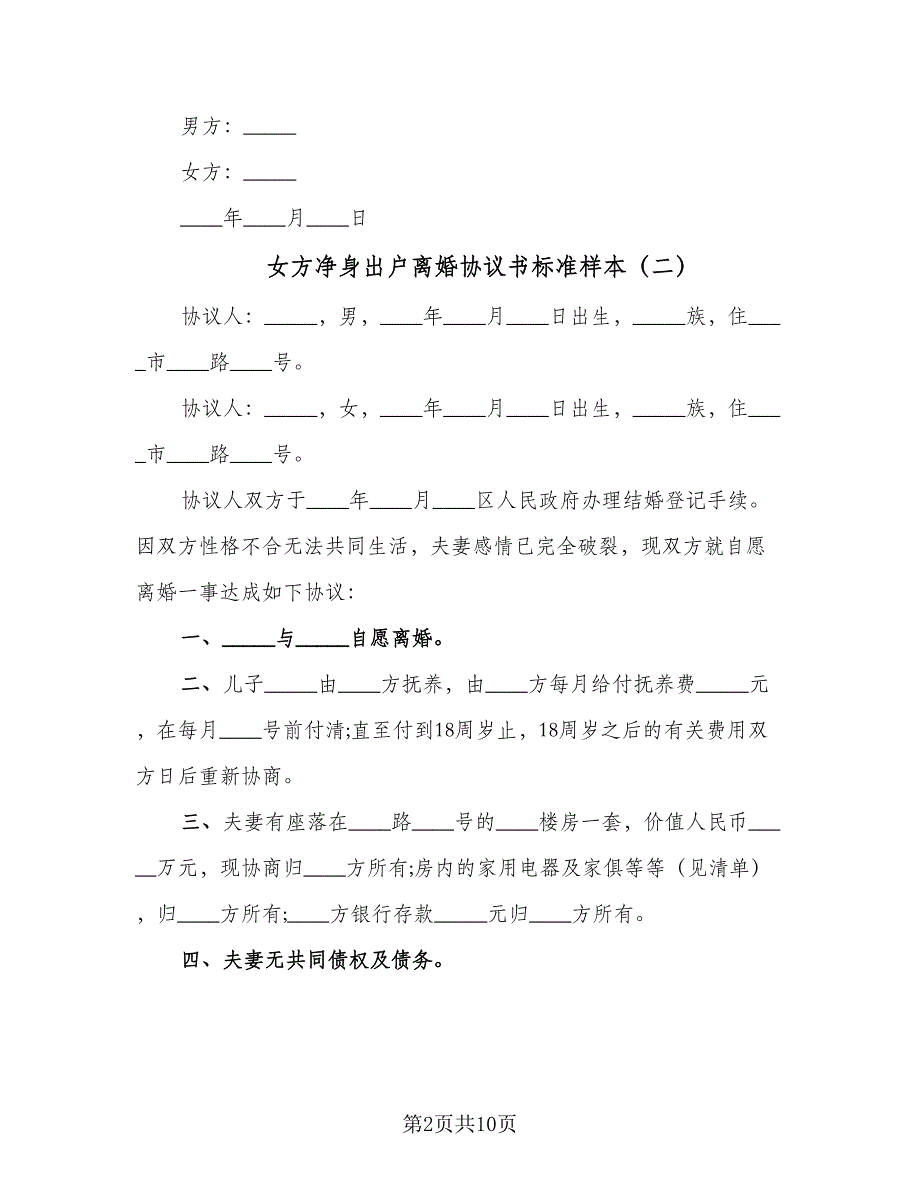 男方：_____
女方：_____
____年____月____日
女方净身出户离婚协议书标准样本（二）
协议人：_____，男，____年____月____日出生，_____族，住___
_市____路____号。
协议人：_____，女，____年____月____日出生，_____族，住___
_市____路____号。
协议人双方于____年____月____区人民政府办理结婚登记手续。
因双方性格不合无法共同生活，夫妻感情已完全破裂，现双方就自愿
离婚一事达成如下协议：
一、_____与_____自愿离婚。
二、儿子_____由____方抚养，由____方每月给付抚养费_____元
，在每月____号前付清;直至付到18周岁止，18周岁之后的有关费用双
方日后重新协商。
三、夫妻有座落在____路____号的____楼房一套，价值人民币___
__万元，现协商归____方所有;房内的家用电器及家俱等等（见清单）
，归____方所有;____方银行存款_____元归____方所有。
四、夫妻无共同债权及债务。
第2页共10页